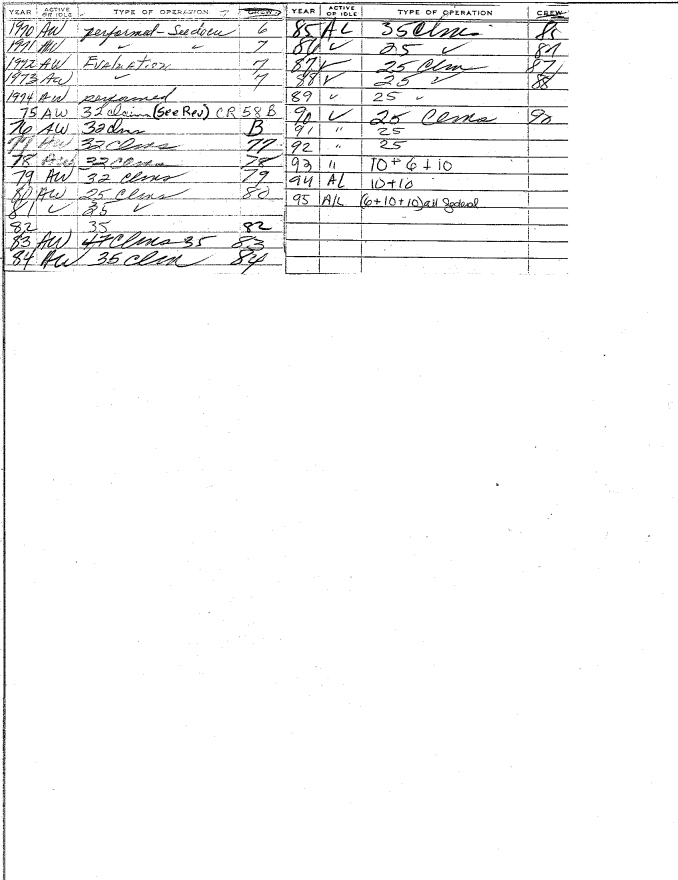 YEAR ACTIVE OR IDLE TYPE OF OPERATION CREW
1970 AW performed - See docu 6
1971 AW " " 7
1972 AW Evaluation 7
1973 AW " 7
1974 AW performed
75 AW 32 claim (See Rev) CR 58 B
76 AW 32 clms B
77 AW 32 Clms 77
78 AW 32 Clms 78
79 AW 32 clms 79
80 AW 25 Clms 80
81 ✓ 35 ✓
82 35 82
83 AW 47 Clms 35 83
84 AW 35 clm 84
YEAR ACTIVE OR IDLE TYPE OF OPERATION CREW
85 AL 35 Clms 85
86 ✓ 25 ✓ 87
87 ✓ 25 Clm 87
88 ✓ 25 ✓ 88
89 ✓ 25 ✓
90 ✓ 25 Clms 90
91 " 25
92 " 25
93 " 10 + 6 + 10
94 AL 10 + 10
95 A/L (6+10+10) all Federal